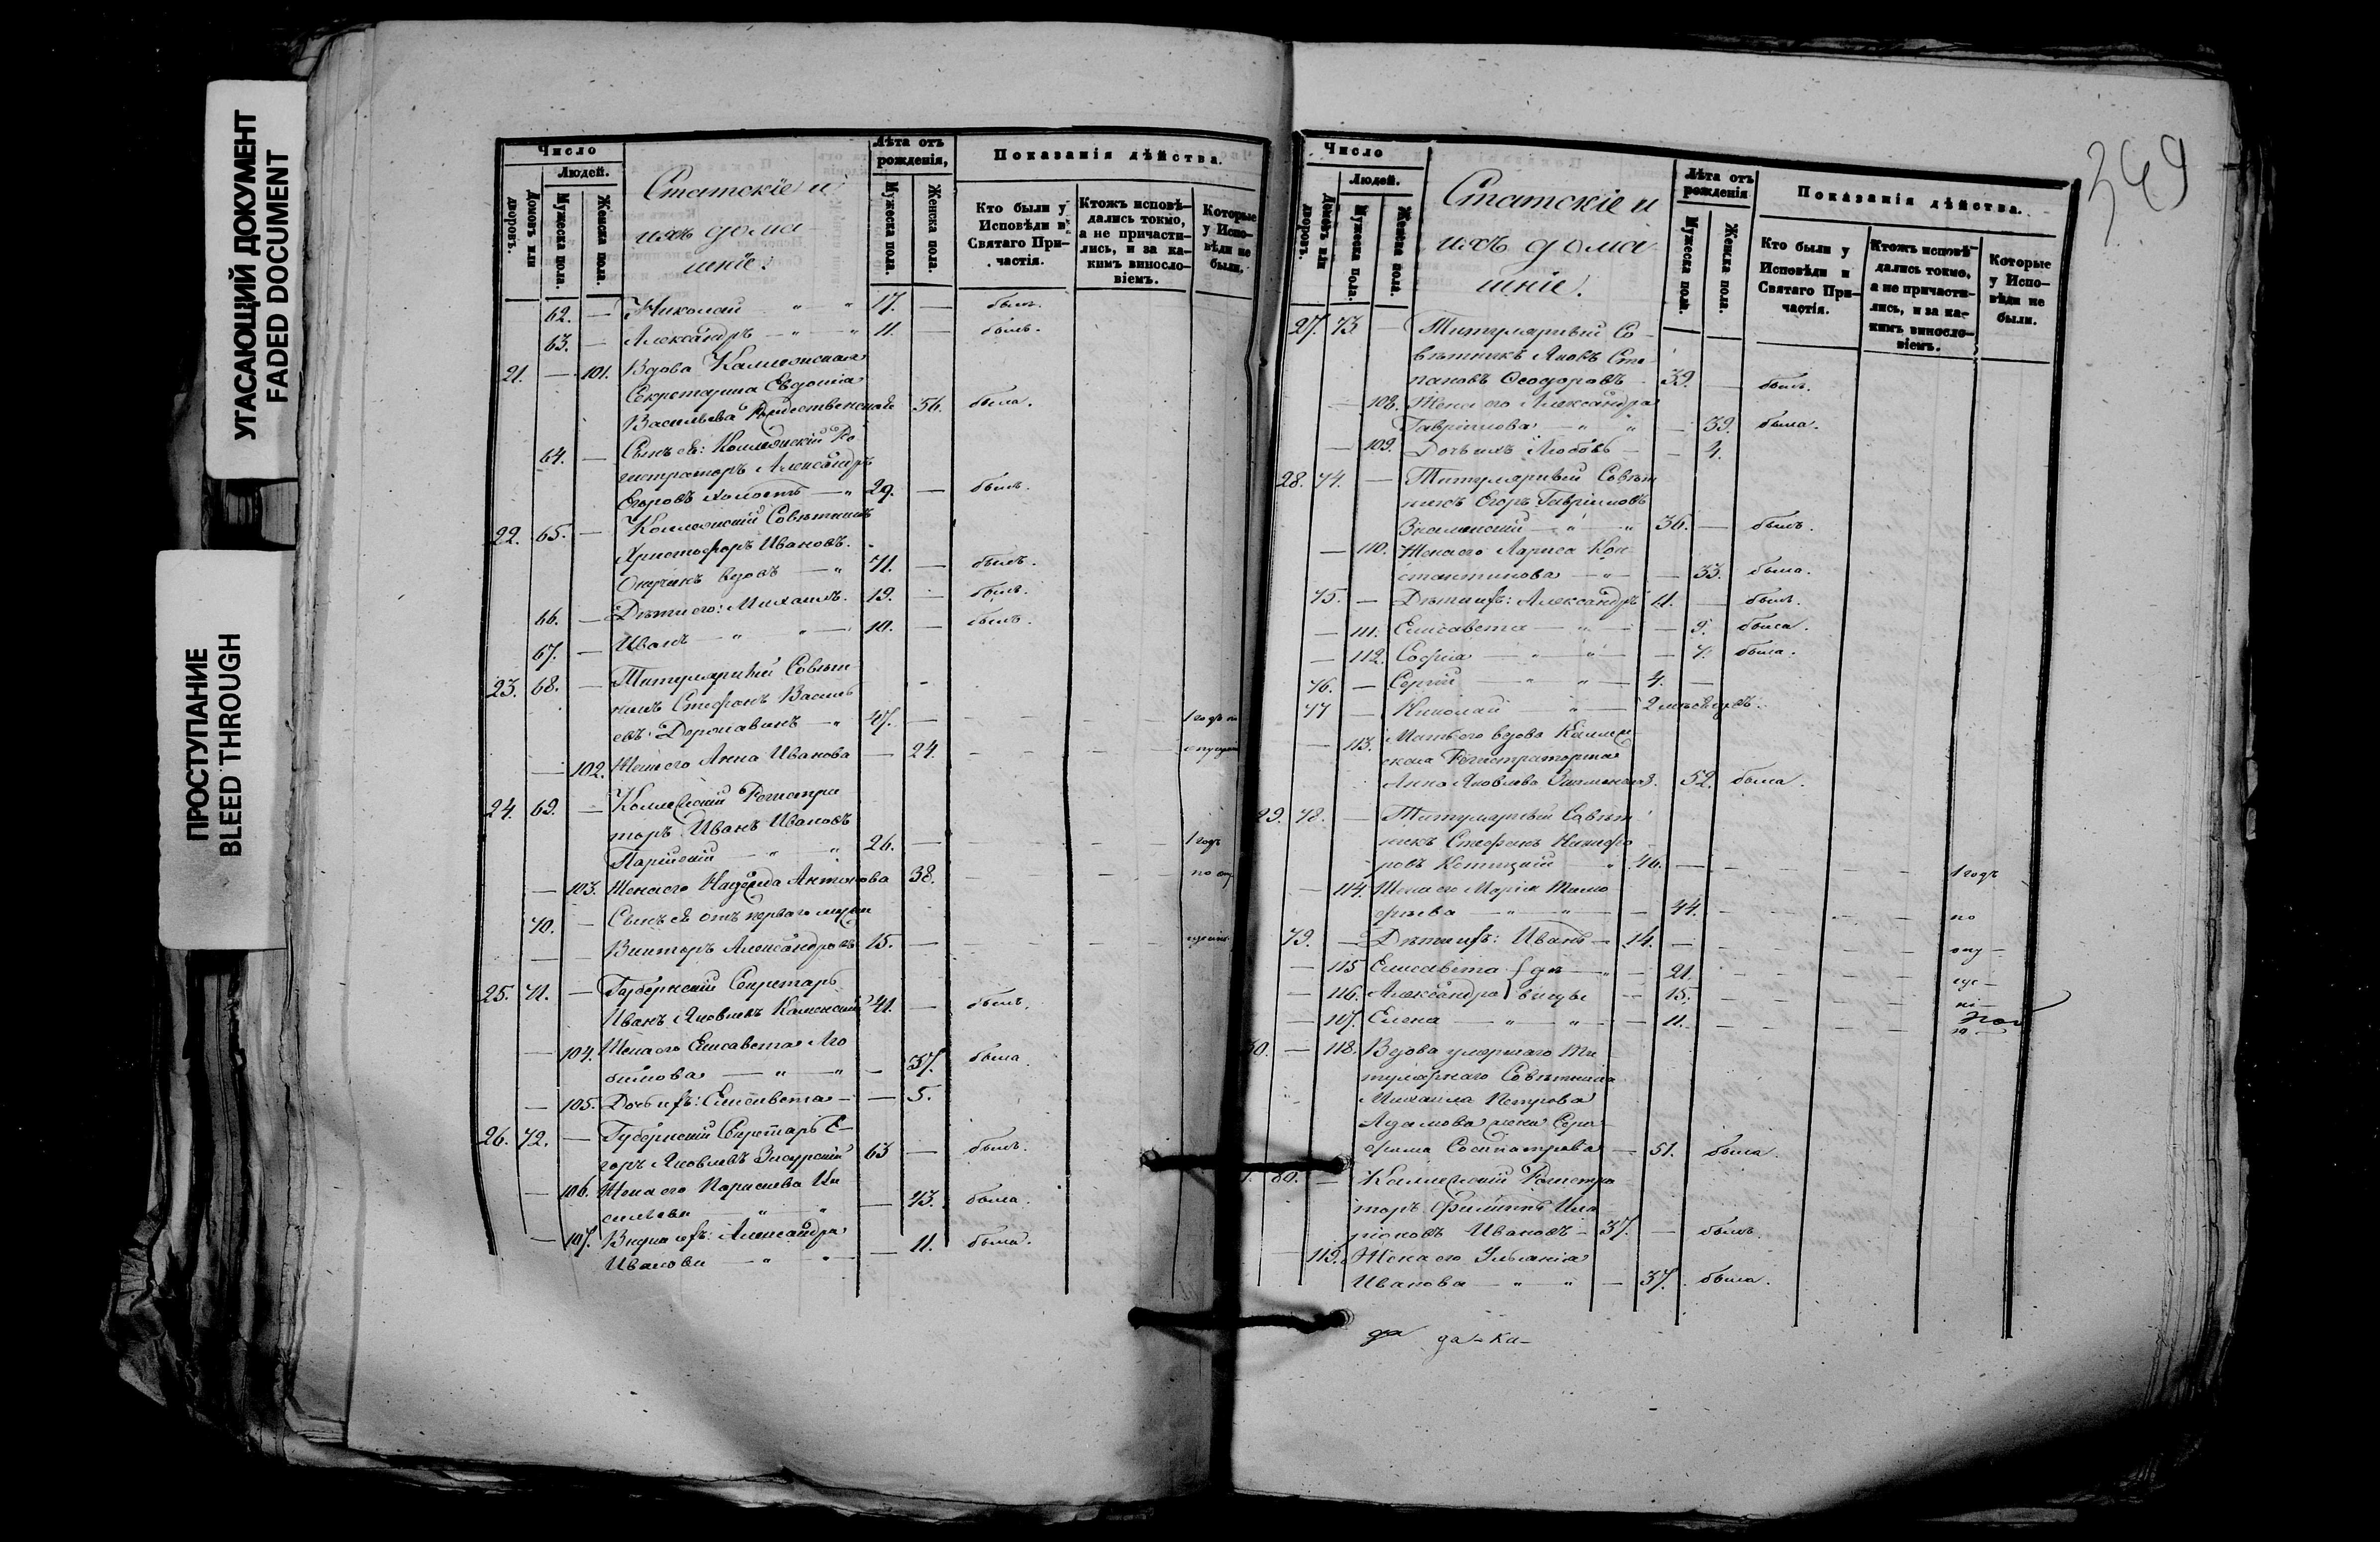 УГАСАЮЩИЙ ДОКУМЕНТ
FADED DOCUMENT
ПРОСТУПАНИЕ
BLEED THROUGH
Число
Людей.
Домовъ или дворовъ.
Мужеска пола.
Женска пола.
Статскіе и
ихъ дома
шніе.
Лѣта отъ рожденія,
Мужеска пола.
Женска пола.
Показанія дѣйства.
Кто были у Исповѣди и Святаго При-частія.
Ктожъ исповѣ-дались токмо, а не причасти-лись, и за ка-кимъ виносло-віемъ.
Которые у Испо-вѣди не были.
62. — Николай 17. — былъ.
63. — Александръ 11. — былъ.
21. — 101. Вдова Коллежская
Секретарша Евдокія
Васильева Рождественская 56. была.
64. — Сынъ ея: Коллежскій Ре
гистраторъ Александръ
Егоровъ холостъ 29. — былъ.
22. 65. — Коллежскій Совѣтникъ
Христофоръ Ивановъ
вдовъ 71. — былъ.
66. — Дѣти его: Михаилъ. 19. — былъ.
67. — Иванъ 10. — былъ.
23. 68. — Титулярный Совѣт
никъ Стефанъ Василь
евъ Державинъ 47. — 1 годъ по
102. Жена его Анна Иванова — 24. опущенію
24. 69. — Коллежскій Регистра
торъ Иванъ Ивановъ
26. — 1 годъ
— 103. Жена его Надежда Антонова 38. по оп
70. — Сынъ ея отъ перваго мужа
Викторъ Александровъ 15. — ущенію
25. 71. — Губернскій Секретарь
Иванъ Яковлевъ Каменскій 41. — былъ.
— 104. Жена его Елисавета Лю
бимова — 37. была
— 105. Дочь ихъ: Елисавета — 5.
26. 72. — Губернскій Секретарь Е
горъ Яковлевъ 63 — былъ.
— 106. Жена его
— 43. была.
— 107. Внука ихъ: Александра
Иванова — 11. была.
249
Число
Людей.
Домовъ или дворовъ.
Мужеска пола.
Женска пола.
Статскіе и
ихъ дома
шніе.
Лѣта отъ рожденія
Мужеска пола.
Женска пола.
Показанія дѣйства.
Кто были у Исповѣди и Святаго При-частія.
Ктожъ исповѣ-дались токмо, а не причасти-лись, и за ка-кимъ виносло-віемъ.
Которые у Испо-вѣди не были.
27. 73 — Титулярный Со
вѣтникъ Яковъ Сте
пановъ Ѳеодоровъ 39. — былъ.
— 108. Жена его Александра
Гавріилова — 39. была.
— 109. Дочь ихъ Любовь — 4.
28. 74. — Титулярный Совѣт
никъ Егоръ Гавріиловъ
Знаменскій 36. — былъ.
— 110. Жена его Лариса Кон
стантинова — 33. была.
75. — Дѣти ихъ: Александръ 11. — былъ.
— 111. Елисавета — 9. была.
— 112. Софія — 7. была.
76. — Сергій 4. —
77 — Николай 2 мѣсяцовъ.
— 113. Мать его вдова Коллеж
ская Регистраторша
Анна Яковлева Знаменская. 52. была.
29. 78. — Титулярный Совѣт
никъ Стефанъ Никифо
ровъ 46. — 1 годъ
— 114. Жена его Марія Тимо
фѣева — 44. по
79. — Дѣти ихъ: Иванъ 14. — опу
— 115 Елисавета дѣ — 21. ще
— 116. Александра вицы — 15. ні
— 117. Елена — 11. ю.
30. — 118. Вдова умершаго Ти
тулярнаго Совѣтника
Михаила Петрова
Адамова жена Сера
фима Сосипатрова — 51. была.
80. — Коллежскій Регистра
торъ Филиппъ Ила
ріоновъ Ивановъ 37. — былъ.
119. Жена его Ульянія
Иванова — 37. была.